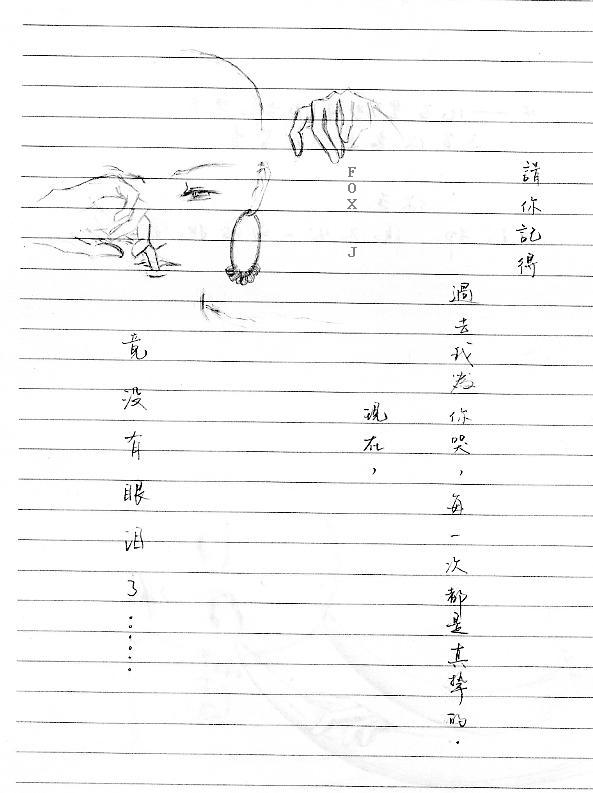 請你記得
過去我為你哭，每一次都是真摯的．
現在，
FOX J
竟没有眼泪了……